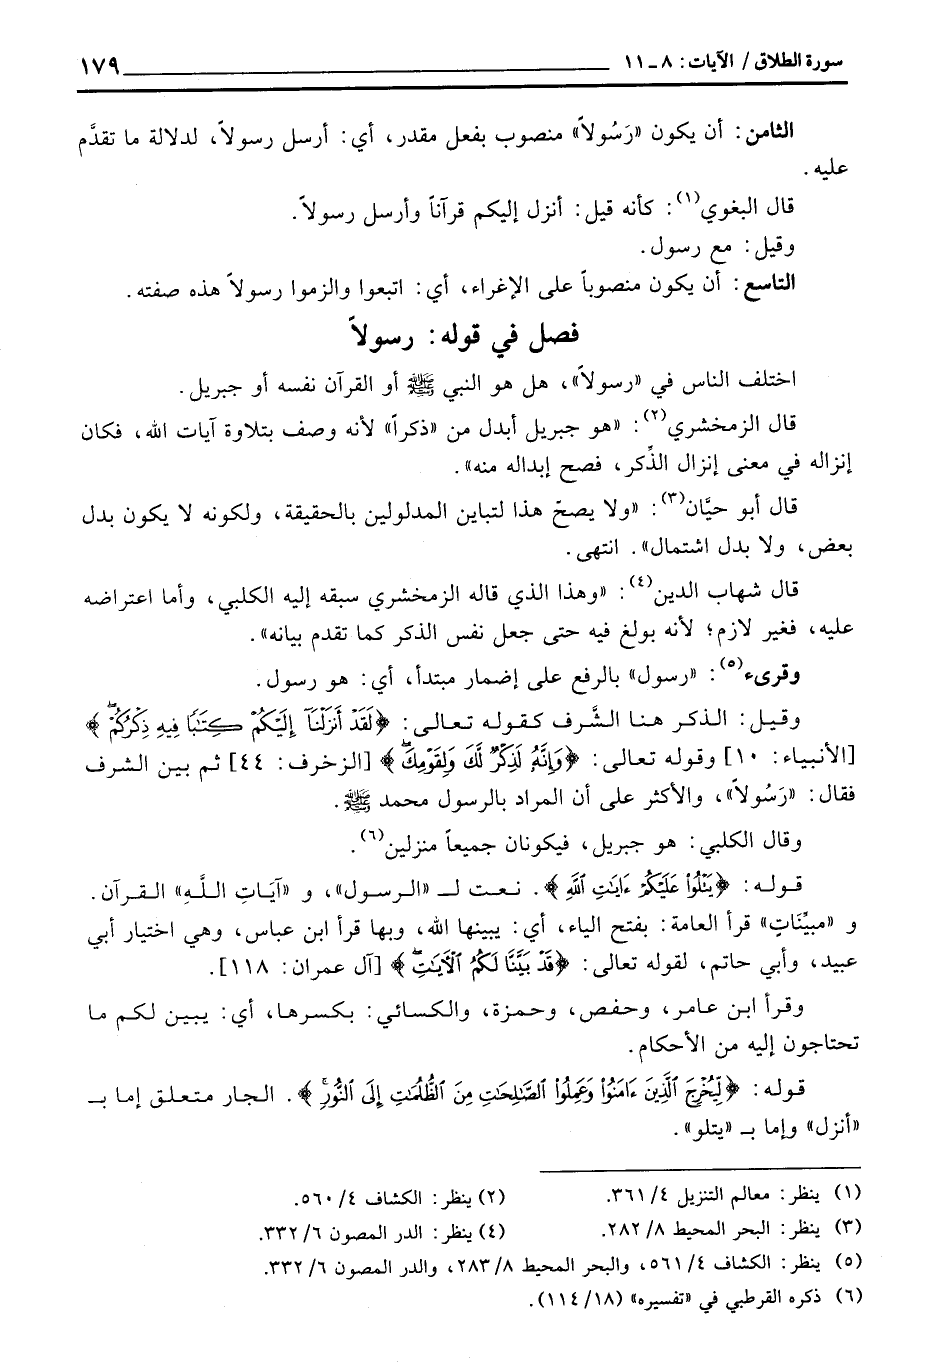 سورة الطلاق / الآيات: ٨ـ١١ ١٧٩
الثامن: أن يكون «رَسُولاً» منصوب بفعل مقدر، أي: أرسل رسولاً، لدلالة ما تقدَّم
عليه.
قال البغوي(١): كأنه قيل: أنزل إليكم قرآناً وأرسل رسولاً.
وقيل: مع رسول.
التاسع: أن يكون منصوباً على الإغراء، أي: اتبعوا والزموا رسولاً هذه صفته.
فصل في قوله: رسولاً
اختلف الناس في «رسولاً»، هل هو النبي ﷺ أو القرآن نفسه أو جبريل.
قال الزمخشري(٢): «هو جبريل أبدل من «ذكراً» لأنه وصف بتلاوة آيات الله، فكان
إنزاله في معنى إنزال الذِّكر، فصح إبداله منه».
قال أبو حيَّان(٣): «ولا يصحّ هذا لتباين المدلولين بالحقيقة، ولكونه لا يكون بدل
بعض، ولا بدل اشتمال». انتهى.
قال شهاب الدين(٤): «وهذا الذي قاله الزمخشري سبقه إليه الكلبي، وأما اعتراضه
عليه، فغير لازم؛ لأنه بولغ فيه حتى جعل نفس الذكر كما تقدم بيانه».
وقرىء(٥): «رسول» بالرفع على إضمار مبتدأ، أي: هو رسول.
وقيل: الذكر هنا الشَّرف كقوله تعالى: ﴿لَقَدْ أَنزَلْنَآ إِلَيْكُمْ كِتَٰبًا فِيهِ ذِكْرُكُمْۖ﴾
[الأنبياء: ١٠] وقوله تعالى: ﴿وَإِنَّهُۥ لَذِكْرٌ لَّكَ وَلِقَوْمِكَۖ﴾ [الزخرف: ٤٤] ثم بين الشرف
فقال: «رَسُولاً»، والأكثر على أن المراد بالرسول محمد ﷺ.
وقال الكلبي: هو جبريل، فيكونان جميعاً منزلين(٦).
قوله: ﴿يَتْلُوا۟ عَلَيْكُمْ ءَايَٰتِ ٱللَّهِ﴾. نعت لـ «الرسول»، و «آيَاتِ اللَّهِ» القرآن.
و «مبيِّنَاتٍ» قرأ العامة: بفتح الياء، أي: يبينها الله، وبها قرأ ابن عباس، وهي اختيار أبي
عبيد، وأبي حاتم، لقوله تعالى: ﴿قَدْ بَيَّنَّا لَكُمُ ٱلْءَايَٰتِۖ﴾ [آل عمران: ١١٨].
وقرأ ابن عامر، وحفص، وحمزة، والكسائي: بكسرها، أي: يبين لكم ما
تحتاجون إليه من الأحكام.
قوله: ﴿لِّيُخْرِجَ ٱلَّذِينَ ءَامَنُوا۟ وَعَمِلُوا۟ ٱلصَّٰلِحَٰتِ مِنَ ٱلظُّلُمَٰتِ إِلَى ٱلنُّورِۚ﴾. الجار متعلق إما بـ
«أنزل» وإما بـ «يتلو».
(١) ينظر: معالم التنزيل ٤/٣٦١. (٢) ينظر: الكشاف ٤/٥٦٠.
(٣) ينظر: البحر المحيط ٨/٢٨٢. (٤) ينظر: الدر المصون ٦/٣٣٢.
(٥) ينظر: الكشاف ٤/٥٦١، والبحر المحيط ٨/٢٨٣، والدر المصون ٦/٣٣٢.
(٦) ذكره القرطبي في «تفسيره» (١٨/١١٤).